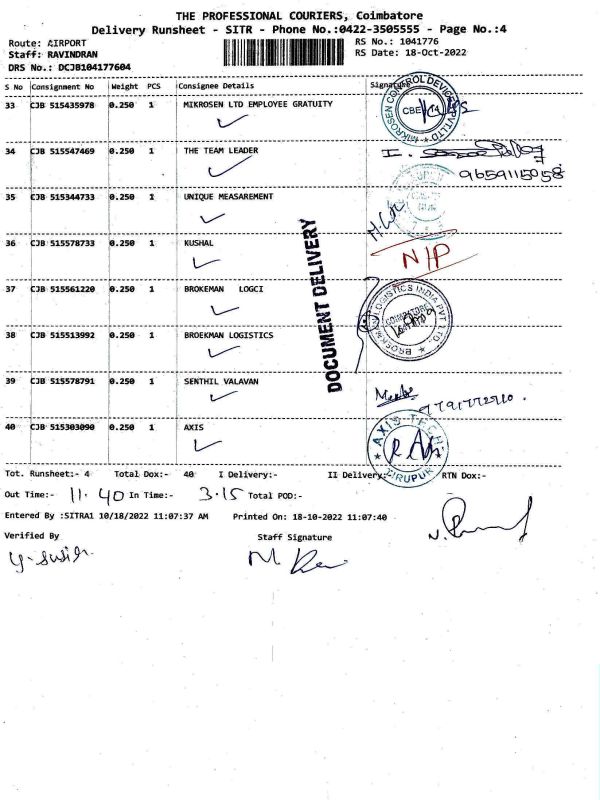 THE PROFESSIONAL COURIERS, Coimbatore
Delivery Runsheet - SITR - Phone No.:0422-3505555 - Page No.:4
Route: AIRPORT
RS No.: 1041776
Staff: RAVINDRAN
RS Date: 18-Oct-2022
DRS No.: DCJB104177604
S No Consignment No Weight PCS Consignee Details Signature
33 CJB 515435978 0.250 1 MIKROSEN LTD EMPLOYEE GRATUITY
MIKROSEN CONTROL DEVICES PVT LTD
CBE 14
34 CJB 515547469 0.250 1 THE TEAM LEADER
9659115058
35 CJB 515344733 0.250 1 UNIQUE MEASAREMENT
36 CJB 515578733 0.250 1 KUSHAL
N/P
DOCUMENT DELIVERY
37 CJB 515561220 0.250 1 BROKEMAN LOGCI
BROEKMAN LOGISTICS INDIA PVT LTD.
COIMBATORE
38 CJB 515513992 0.250 1 BROEKMAN LOGISTICS
39 CJB 515578791 0.250 1 SENTHIL VALAVAN
40 CJB 515303090 0.250 1 AXIS
AXIS TECH
TIRUPUR
Tot. Runsheet:- 4 Total Dox:- 40 I Delivery:- II Delivery:- RTN Dox:-
Out Time:- 11.40 In Time:- 3.15 Total POD:-
Entered By :SITRA1 10/18/2022 11:07:37 AM Printed On: 18-10-2022 11:07:40
Verified By Staff Signature